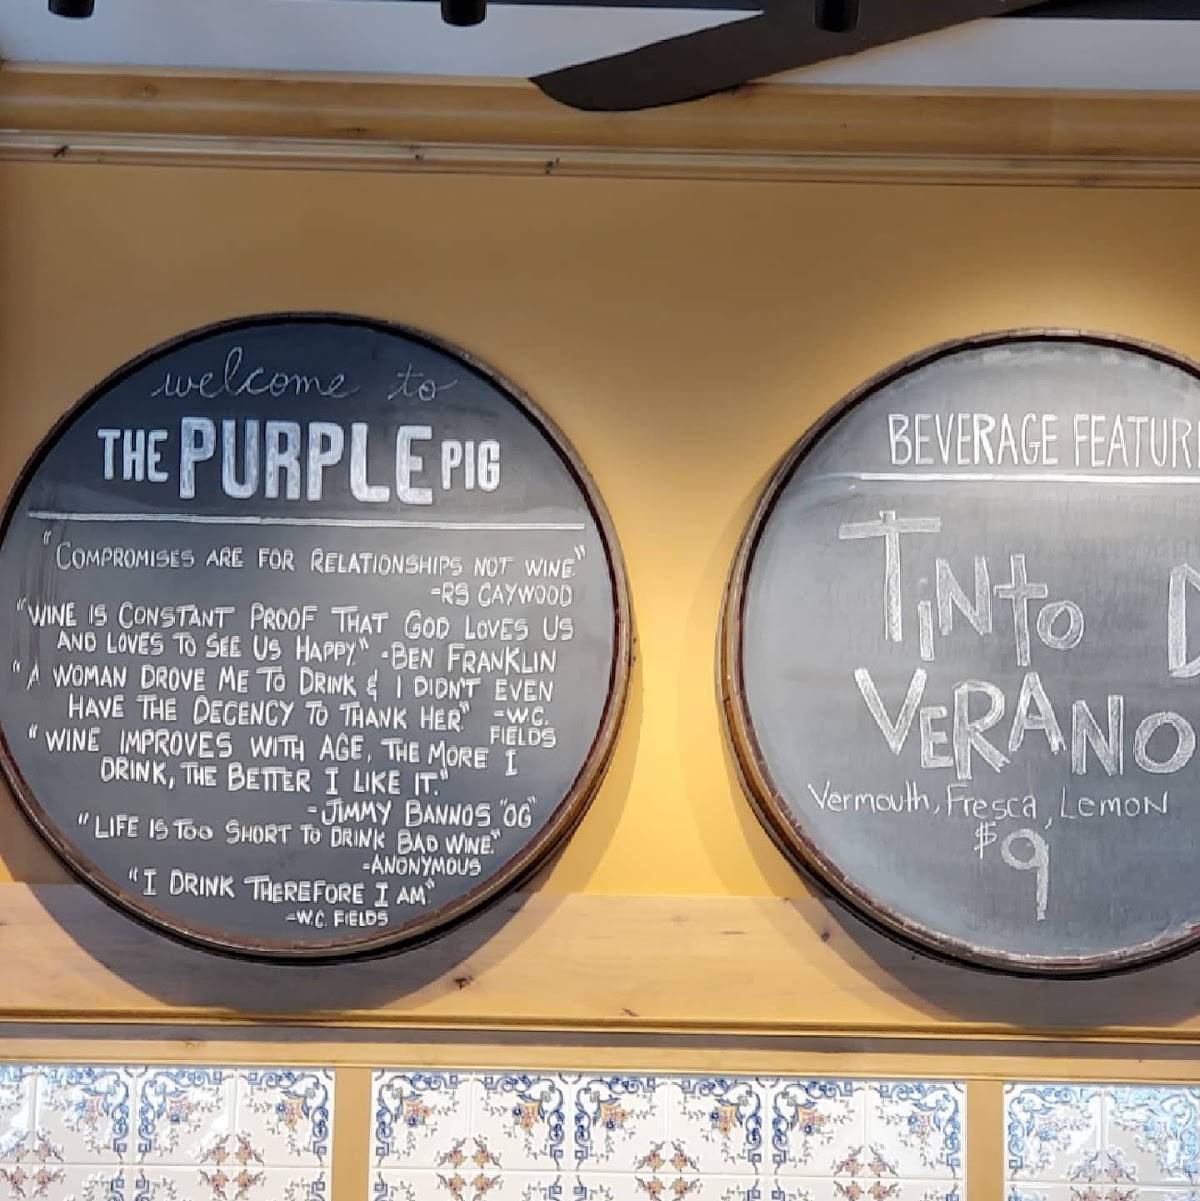 welcome to
THE PURPLE PIG
"COMPROMISES ARE FOR RELATIONSHIPS NOT WINE"
-RS CAYWOOD
"WINE IS CONSTANT PROOF THAT GOD LOVES US
AND LOVES TO SEE US HAPPY" -BEN FRANKLIN
"A WOMAN DROVE ME TO DRINK & I DIDN'T EVEN
HAVE THE DECENCY TO THANK HER" -W.C.
FIELDS
"WINE IMPROVES WITH AGE, THE MORE I
DRINK, THE BETTER I LIKE IT."
-JIMMY BANNOS "OG"
"LIFE IS TOO SHORT TO DRINK BAD WINE."
-ANONYMOUS
"I DRINK THEREFORE I AM"
-W.C. FIELDS
BEVERAGE FEATUR
TINTO D
VERANO
Vermouth, Fresca, Lemon
$9